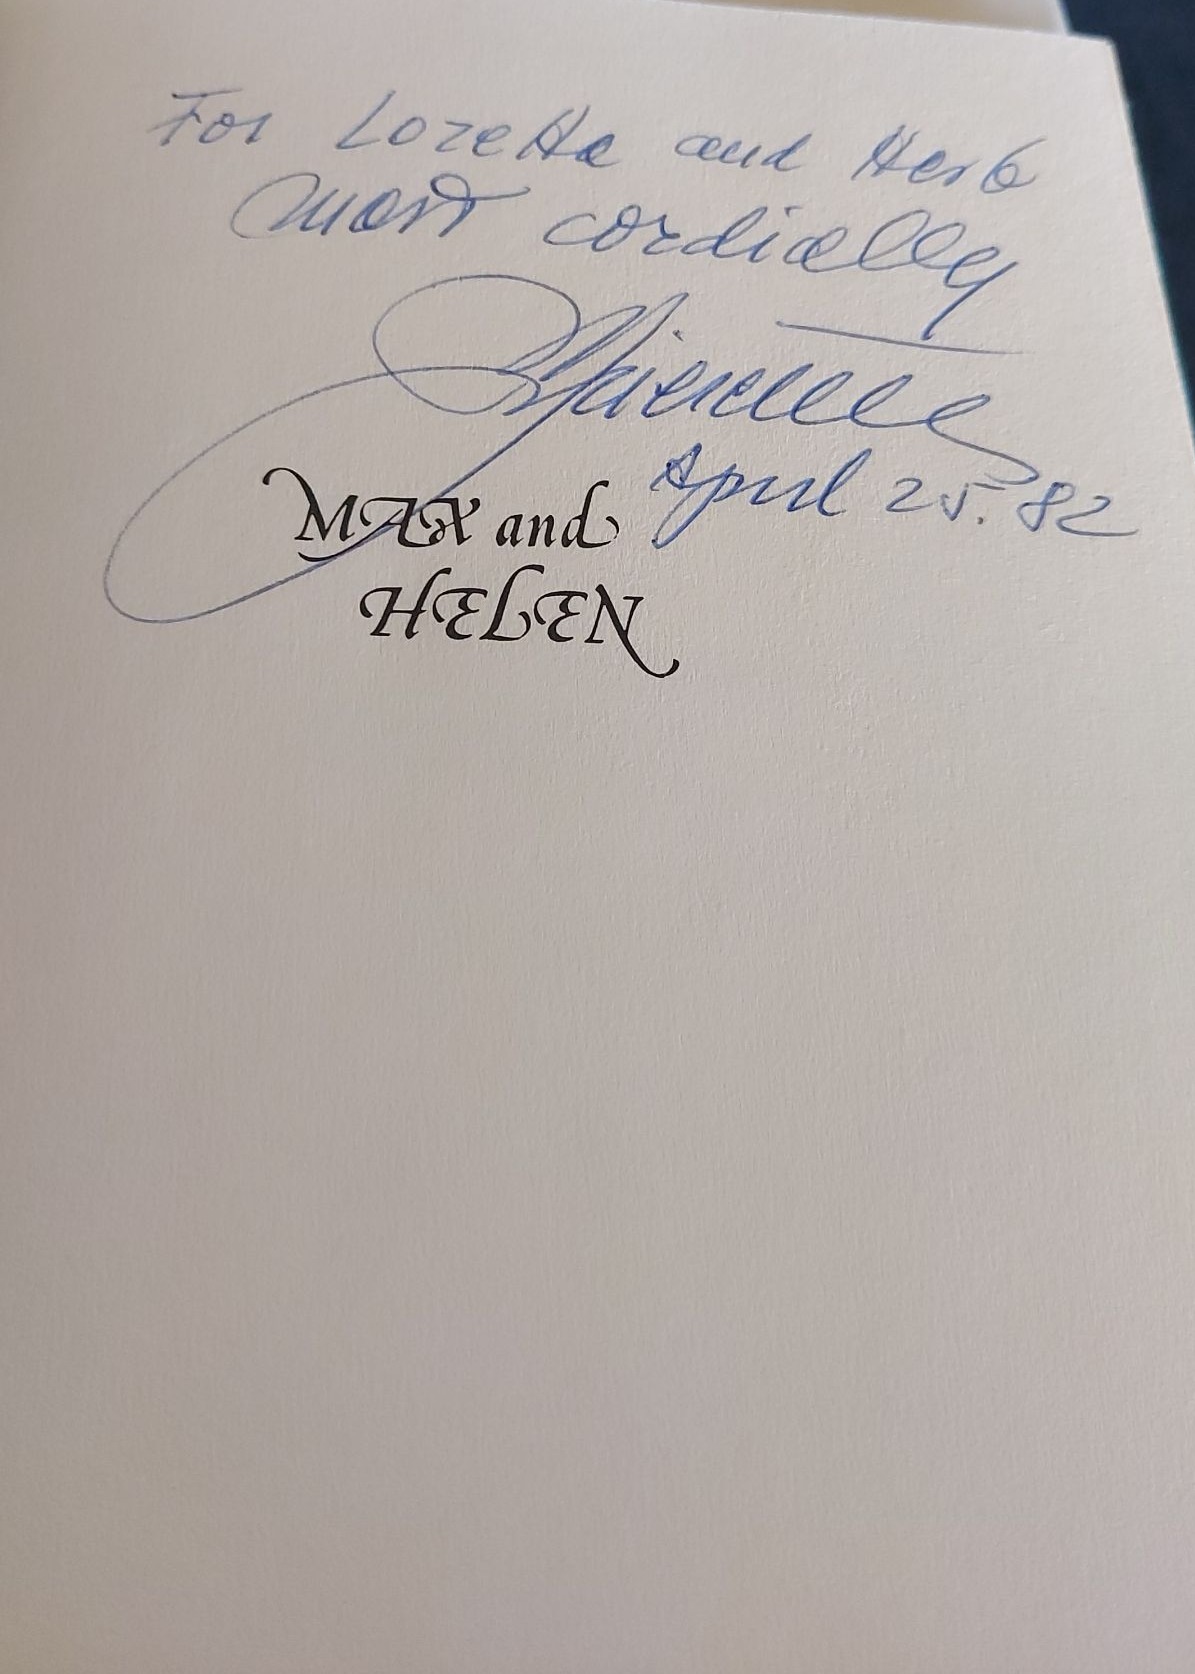 For Loretta and Herb
most cordially
April 25. 82
MAX and
HELEN